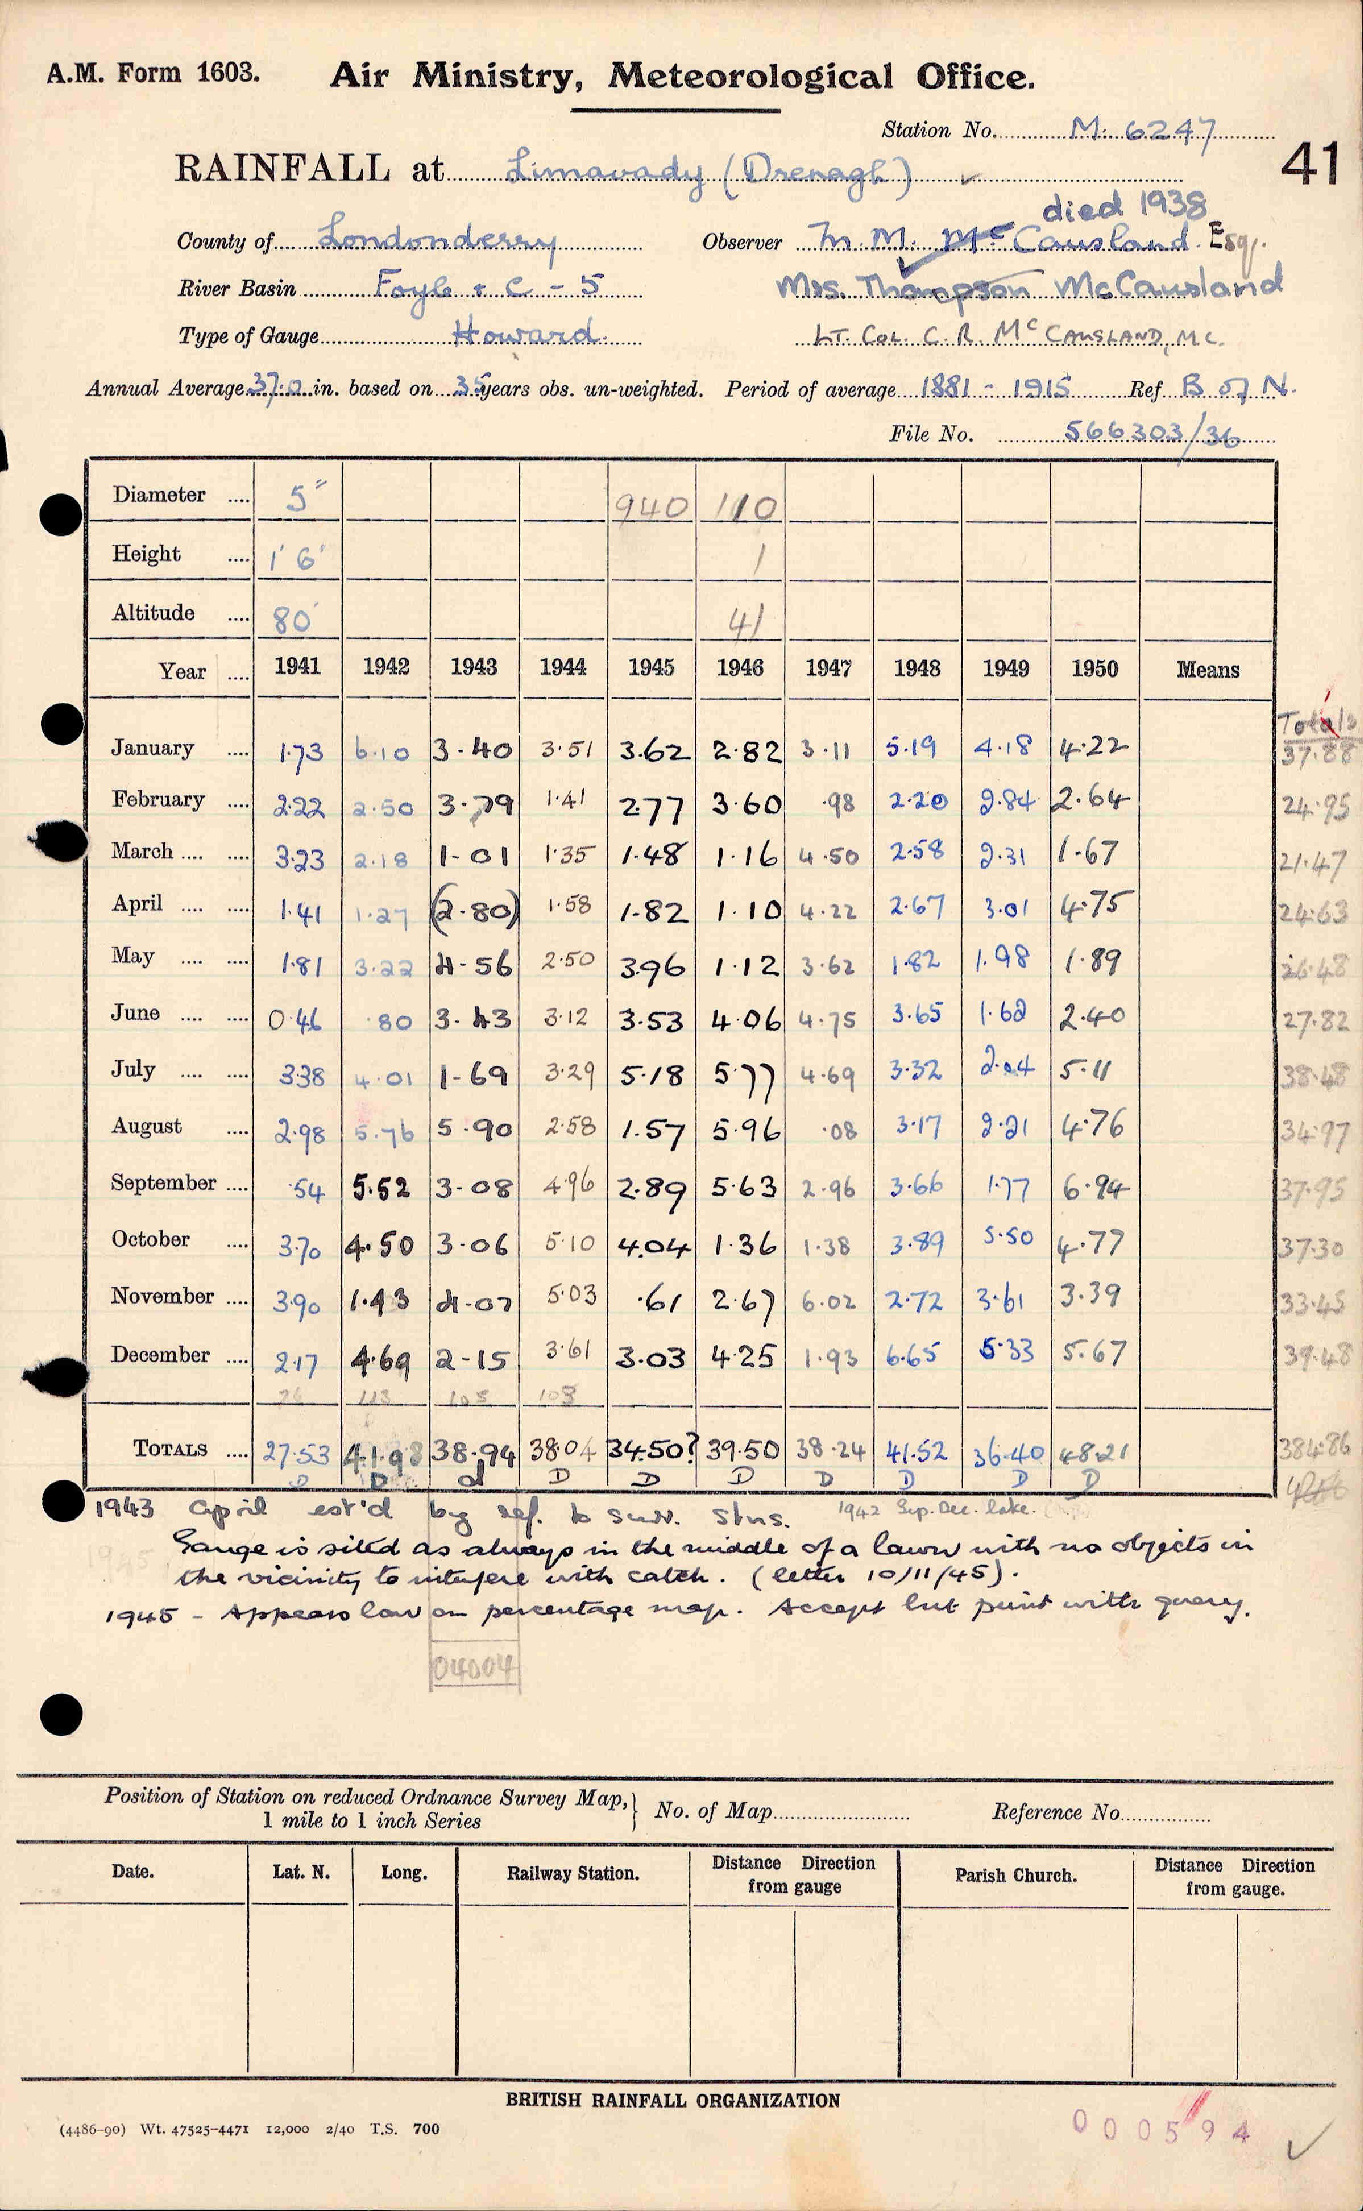 A.M. Form 1603. Air Ministry, Meteorological Office.
Station No. M. 6247
41
RAINFALL at Limavady (Drenagh) ✓
died 1938
County of Londonderry Observer M. M. McCausland Esq.
River Basin Foyle & C - 5 Mrs. Thompson McCausland
Type of Gauge Howard. LT. COL. C. R. McCAUSLAND, M.C.
Annual Average 37.0 in. based on 35 years obs. un-weighted. Period of average 1881 - 1915 Ref B of N.
File No. 566303/36
Diameter .... 5" 940 110
Height .... 1' 6" 1
Altitude .... 80' 41
Year .... 1941 1942 1943 1944 1945 1946 1947 1948 1949 1950 Means
Totals
January .... 1.73 6.10 3.40 3.51 3.62 2.82 3.11 5.19 4.18 4.22 37.88
February .... 2.22 2.50 3.79 1.41 2.77 3.60 .98 2.20 2.84 2.64 24.95
March .... .... 3.23 2.18 1.01 1.35 1.48 1.16 4.50 2.58 2.31 1.67 21.47
April .... .... 1.41 1.27 (2.80) 1.58 1.82 1.10 4.22 2.67 3.01 4.75 24.63
May .... .... 1.81 3.22 4.56 2.50 3.96 1.12 3.62 1.82 1.98 1.89 26.48
June .... .... 0.46 .80 3.43 3.12 3.53 4.06 4.75 3.65 1.62 2.40 27.82
July .... .... 3.38 4.01 1.69 3.29 5.18 5.77 4.69 3.32 2.04 5.11 38.48
August .... 2.98 5.76 5.90 2.58 1.57 5.96 .08 3.17 2.21 4.76 34.97
September .... .54 5.52 3.08 4.96 2.89 5.63 2.96 3.66 1.77 6.94 37.95
October .... 3.70 4.50 3.06 5.10 4.04 1.36 1.38 3.89 5.50 4.77 37.30
November .... 3.90 1.43 4.07 5.03 .61 2.67 6.02 2.72 3.61 3.39 33.45
December .... 2.17 4.69 2.15 3.61 3.03 4.25 1.93 6.65 5.33 5.67 39.48
113 105 103
TOTALS .... 27.53 41.98 38.94 38.04 34.50? 39.50 38.24 41.52 36.40 48.21 384.86
D D d D D D D D D D
1943 April est'd by ref. to surr. stns. 1942 Sep. Dec. late.
Gauge is sited as always in the middle of a lawn with no objects in
the vicinity to interfere with catch. (letter 10/11/45).
1945 - Appears low on percentage map. Accept but print with query.
04004
Position of Station on reduced Ordnance Survey Map,
1 mile to 1 inch Series
No. of Map Reference No.
Date. Lat. N. Long. Railway Station. Distance Direction from gauge Parish Church. Distance Direction from gauge.
BRITISH RAINFALL ORGANIZATION
(4486-90) Wt. 47525-4471 12,000 2/40 T.S. 700
000594 ✓